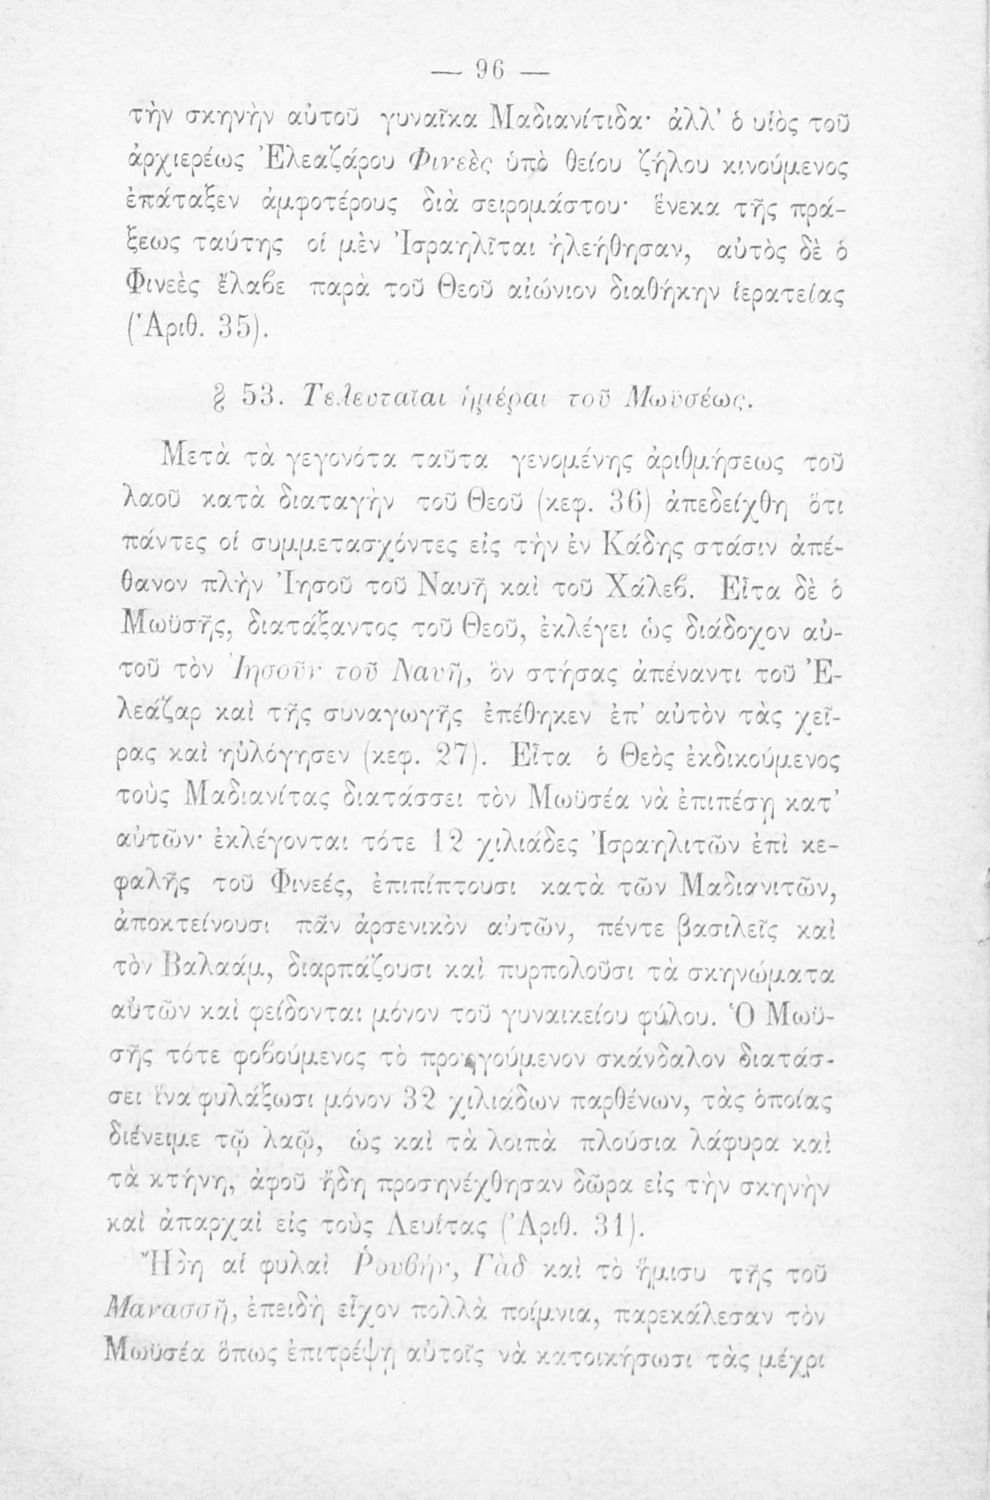 — 96 —
τὴν σκηνὴν αὐτοῦ γυναῖκα Μαδιανίτιδα· ἀλλ’ ὁ υἱὸς τοῦ
ἀρχιερέως Ἐλεαζάρου Φινεὲς ὑπὸ θείου ζήλου κινούμενος
ἐπάταξεν ἀμφοτέρους διὰ σειρομάστου· ἕνεκα τῆς πρά-
ξεως ταύτης οἱ μὲν Ἰσραηλῖται ἠλεήθησαν, αὐτὸς δὲ ὁ
Φινεὲς ἔλαβε παρὰ τοῦ Θεοῦ αἰώνιον διαθήκην ἱερατείας
(Ἀριθ. 35).
§ 53. Τελευταῖαι ἡμέραι τοῦ Μωϋσέως.
Μετὰ τὰ γεγονότα ταῦτα γενομένης ἀριθμήσεως τοῦ
λαοῦ κατὰ διαταγὴν τοῦ Θεοῦ (κεφ. 36) ἀπεδείχθη ὅτι
πάντες οἱ συμμετασχόντες εἰς τὴν ἐν Κάδης στάσιν ἀπέ-
θανον πλὴν Ἰησοῦ τοῦ Ναυῆ καὶ τοῦ Χάλεβ. Εἶτα δὲ ὁ
Μωϋσῆς, διατάξαντος τοῦ Θεοῦ, ἐκλέγει ὡς διάδοχον αὐ-
τοῦ τὸν Ἰησοῦν τοῦ Ναυῆ, ὃν στήσας ἀπέναντι τοῦ Ἐ-
λεάζαρ καὶ τῆς συναγωγῆς ἐπέθηκεν ἐπ’ αὐτὸν τὰς χεῖ-
ρας καὶ ηὐλόγησεν (κεφ. 27). Εἶτα ὁ Θεὸς ἐκδικούμενος
τοὺς Μαδιανίτας διατάσσει τὸν Μωϋσέα νὰ ἐπιπέσῃ κατ’
αὐτῶν· ἐκλέγονται τότε 12 χιλιάδες Ἰσραηλιτῶν ἐπὶ κε-
φαλῆς τοῦ Φινεές, ἐπιπίπτουσι κατὰ τῶν Μαδιανιτῶν,
ἀποκτείνουσι πᾶν ἀρσενικὸν αὐτῶν, πέντε βασιλεῖς καὶ
τὸν Βαλαάμ, διαρπάζουσι καὶ πυρπολοῦσι τὰ σκηνώματα
αὐτῶν καὶ φείδονται μόνον τοῦ γυναικείου φύλου. Ὁ Μωϋ-
σῆς τότε φοβούμενος τὸ προηγούμενον σκάνδαλον διατάσ-
σει ἵνα φυλάξωσι μόνον 32 χιλιάδων παρθένων, τὰς ὁποίας
διένειμε τῷ λαῷ, ὡς καὶ τὰ λοιπὰ πλούσια λάφυρα καὶ
τὰ κτήνη, ἀφοῦ ἤδη προσηνέχθησαν δῶρα εἰς τὴν σκηνὴν
καὶ ἀπαρχαὶ εἰς τοὺς Λευίτας (Ἀριθ. 31).
Ἤδη αἱ φυλαὶ Ῥουβήν, Γὰδ καὶ τὸ ἥμισυ τῆς τοῦ
Μανασσῆ, ἐπειδὴ εἶχον πολλὰ ποίμνια, παρεκάλεσαν τὸν
Μωϋσέα ὅπως ἐπιτρέψῃ αὐτοῖς νὰ κατοικήσωσι τὰς μέχρι